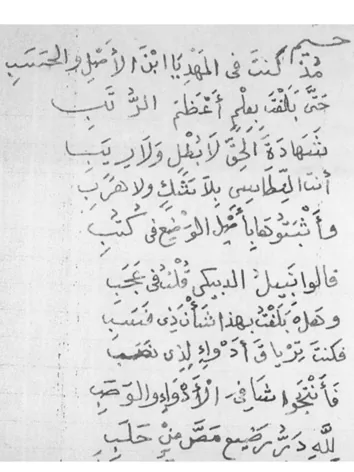 حسيم
مُذْ كنتَ فى المَهْدِ يَا ابْنَ الأَصْلِ والحَسَبِ
حَتَّى بَلَغْتَ بِعِلْمٍ أَعْظَمَ الرُّتَبِ
شَهَادَةَ الحَقِّ لَا بُطْلٍ وَلَا رِيَبِ
أنتَ النِّطَاسِى بِلَا شَكٍّ ولا هَرَبِ
وأَثْبَتُوهَا بِأَصْلِ الوَضْعِ فى كُتُبِ
قالوا نَبِيلُ الدبيكى قُلْتُ فى عَجَبِ
وهَلْ بَلَغْتُ بهذا شَأْنَ ذِى حَسَبِ
فكنتَ تِرْيَاقَ أَدْوَاءٍ لِذِى نَصَبِ
شَافِىَ الْأَدْوَاءِ والوَصَبِ
لِلَّهِ دَرُّ رَضِيعٍ مَصَّ مِنْ حَلَبِ